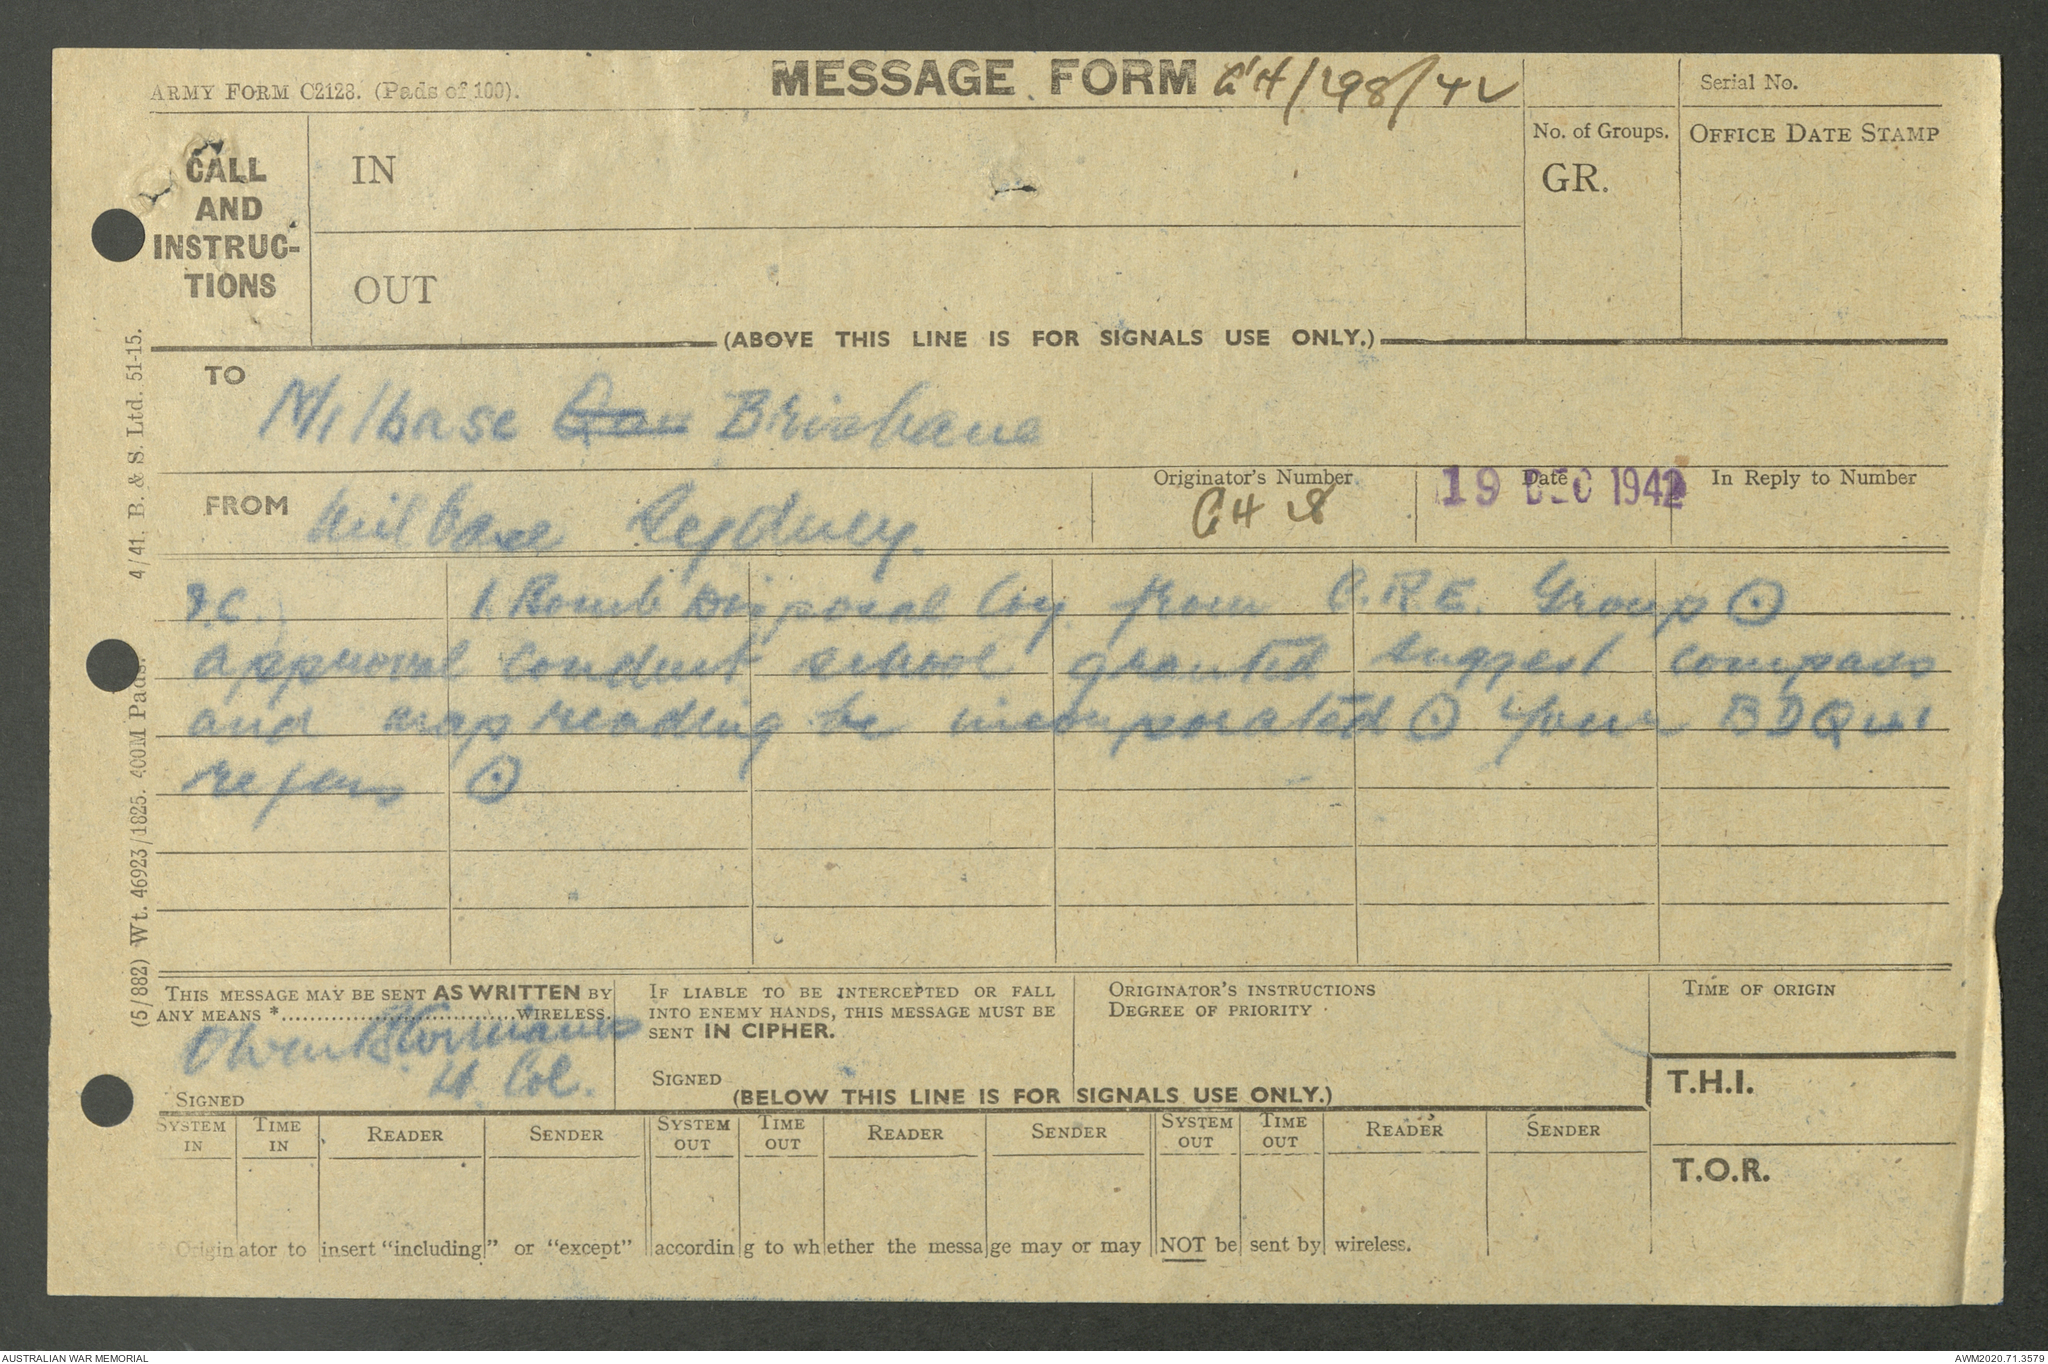 ARMY FORM C2128. (Pads of 100).
MESSAGE FORM
Serial No.
CALL
AND
INSTRUC-
TIONS
IN
OUT
No. of Groups.
GR.
OFFICE DATE STAMP
(ABOVE THIS LINE IS FOR SIGNALS USE ONLY.)
TO
Milbase Brisbane
FROM
Milbase Sydney.
Originator's Number
Date
19 DEC 1942
In Reply to Number
1. Bomb Disposal Coy. from C.R.E. Group ⊙
approval conduct school granted suggest compass
and map reading be incorporated ⊙ your BDQ
refers ⊙
(5/882) Wt. 46923/1825. 400M Pads. 4/41. B. & S. Ltd. 51-15.
THIS MESSAGE MAY BE SENT AS WRITTEN BY
ANY MEANS *..................................WIRELESS.
Lt. Col.
SIGNED
IF LIABLE TO BE INTERCEPTED OR FALL
INTO ENEMY HANDS, THIS MESSAGE MUST BE
SENT IN CIPHER.
SIGNED
ORIGINATOR'S INSTRUCTIONS
DEGREE OF PRIORITY
TIME OF ORIGIN
(BELOW THIS LINE IS FOR SIGNALS USE ONLY.)
T.H.I.
T.O.R.
SYSTEM IN
TIME IN
READER
SENDER
SYSTEM OUT
TIME OUT
READER
SENDER
SYSTEM OUT
TIME OUT
READER
SENDER
Originator to insert "including" or "except" according to whether the message may or may NOT be sent by wireless.
AUSTRALIAN WAR MEMORIAL
AWM2020.71.3579